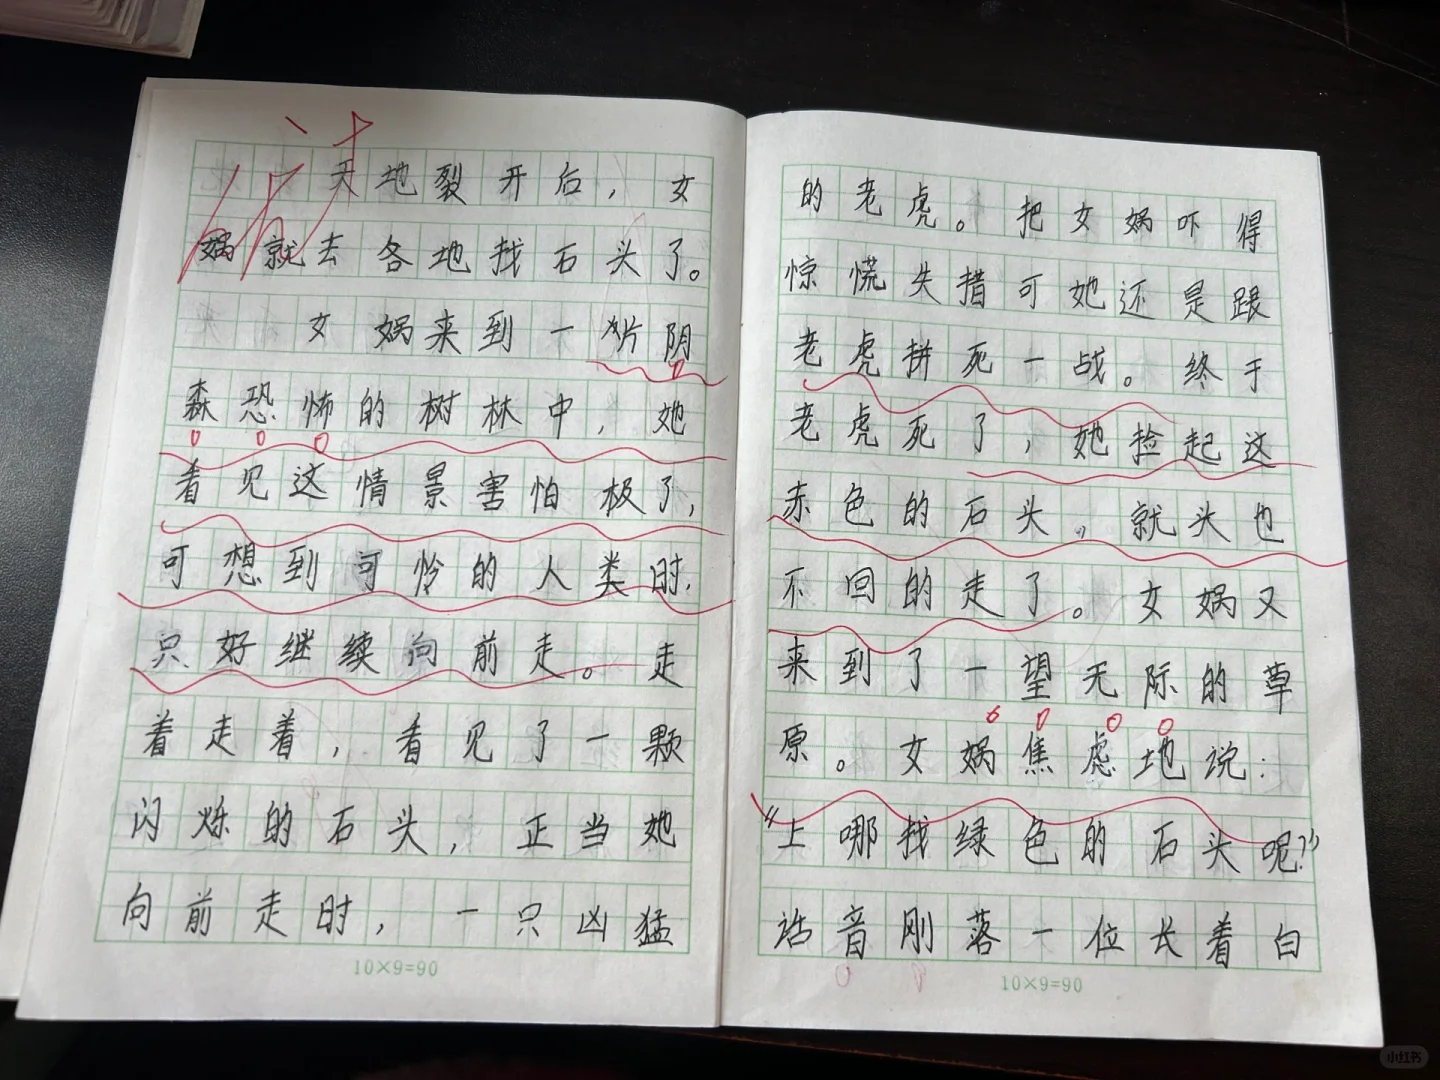 优
天地裂开后，女
娲就去各地找石头了。
女娲来到一片阴
森恐怖的树林中，她
看见这情景害怕极了，
可想到可怜的人类时，
只好继续向前走。走
着走着，看见了一颗
闪烁的石头，正当她
向前走时，一只凶猛
10×9=90
的老虎。把女娲吓得
惊慌失措可她还是跟
老虎拼死一战。终于
老虎死了，她捡起这
赤色的石头，就头也
不回的走了。女娲又
来到了一望无际的草
原。女娲焦虑地说：
“上哪找绿色的石头呢？”
话音刚落一位长着白
10×9=90
小红书